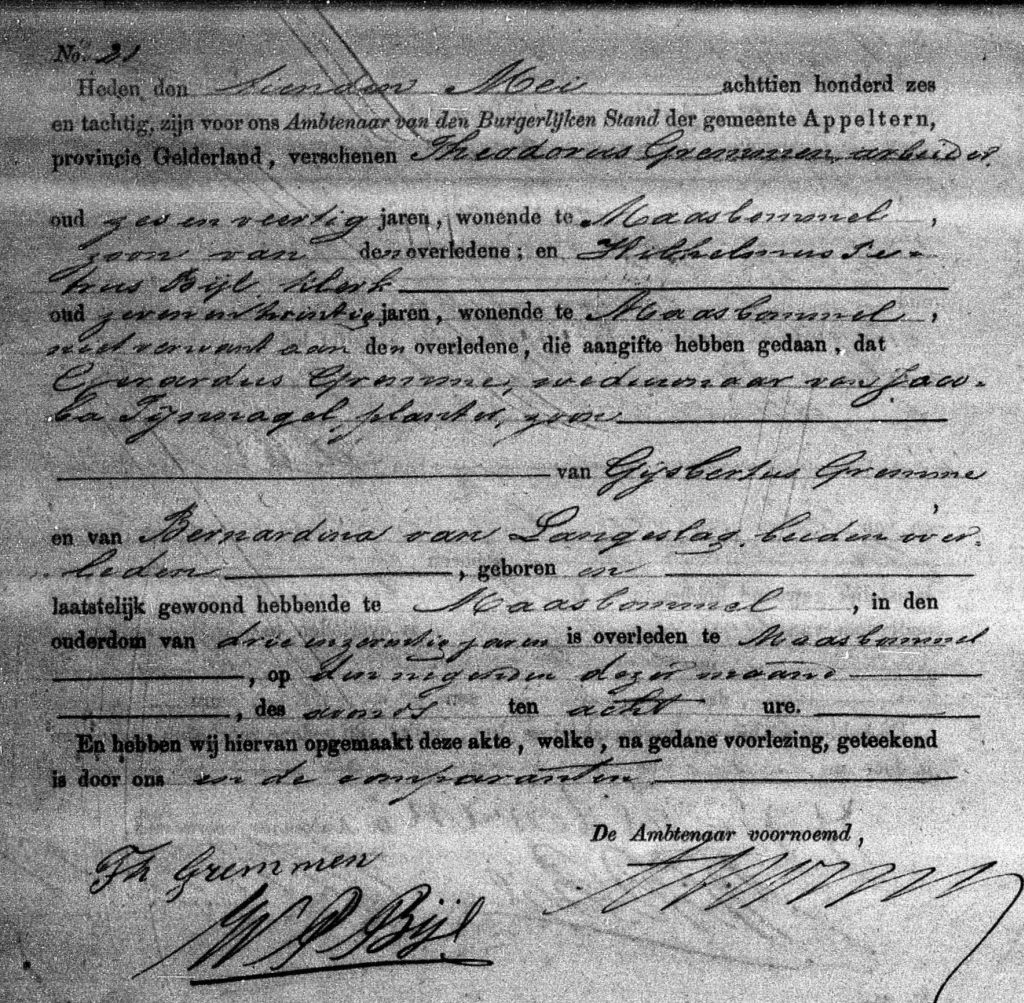 No. 21
Heden den tienden Mei achttien honderd zes
en tachtig, zijn voor ons Ambtenaar van den Burgerlijken Stand der gemeente Appeltern,
provincie Gelderland, verschenen Theodorus Gremmen, arbeider
oud zes en veertig jaren, wonende te Maasbommel,
zoon van den overledene; en Wilhelmus Pe-
trus Bijl klerk
oud zeven en twintig jaren, wonende te Maasbommel,
niet verwant aan den overledene, die aangifte hebben gedaan, dat
Gerardus Gremme, weduwnaar van Jaco-
ba Tijnnagel, planter, zoon
van Gijsbertus Gremme
,
en van Bernardina van Langeslag, beiden over-
leden, geboren en
laatstelijk gewoond hebbende te Maasbommel, in den
ouderdom van drie en zeventig jaren is overleden te Maasbommel
, op den negenden dezer maand
, des avonds ten acht ure.
En hebben wij hiervan opgemaakt deze akte, welke, na gedane voorlezing, geteekend
is door ons en de comparanten
De Ambtenaar voornoemd,
Th Gremmen
W P Bijl